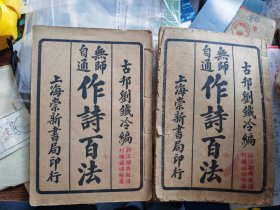 古邗劉鐵冷編
無師自通
作詩百法
上海崇新書局印行
古邗劉鐵冷編
無師自通
作詩百法
上海崇新書局印行